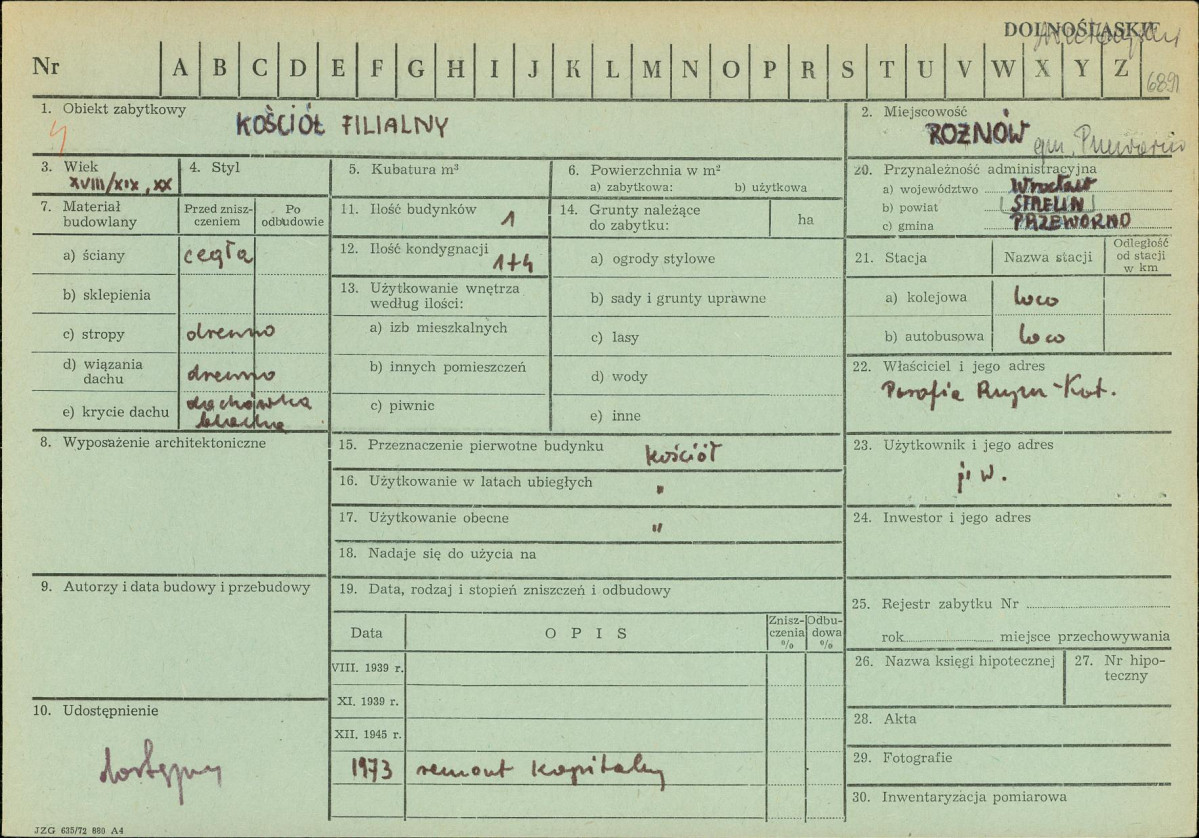 DOLNOŚLĄSKIE
Nr A B C D E F G H I J K L M N O P R S T U V W X Y Z
6891
1. Obiekt zabytkowy
KOŚCIÓŁ FILIALNY
2. Miejscowość
ROŻNÓW gm. Przeworno
3. Wiek
XVIII/XIX, XX
4. Styl
5. Kubatura m³
6. Powierzchnia w m²
a) zabytkowa: b) użytkowa
20. Przynależność administracyjna
a) województwo Wrocław
b) powiat STRZELIN
c) gmina PRZEWORNO
7. Materiał budowlany
Przed zniszczeniem
Po odbudowie
a) ściany cegła
b) sklepienia
c) stropy drewno
d) wiązania dachu drewno
e) krycie dachu dachówka
blacha
11. Ilość budynków 1
12. Ilość kondygnacji 1+4
13. Użytkowanie wnętrza według ilości:
a) izb mieszkalnych
b) innych pomieszczeń
c) piwnic
14. Grunty należące do zabytku:
ha
a) ogrody stylowe
b) sady i grunty uprawne
c) lasy
d) wody
e) inne
21. Stacja
Nazwa stacji
Odległość od stacji w km
a) kolejowa loco
b) autobusowa loco
22. Właściciel i jego adres
Parafia Rzym-Kat.
8. Wyposażenie architektoniczne
15. Przeznaczenie pierwotne budynku kościół
16. Użytkowanie w latach ubiegłych "
17. Użytkowanie obecne "
18. Nadaje się do użycia na
23. Użytkownik i jego adres
j. w.
24. Inwestor i jego adres
9. Autorzy i data budowy i przebudowy
19. Data, rodzaj i stopień zniszczeń i odbudowy
Data
O P I S
Zniszczenia %
Odbudowa %
VIII. 1939 r.
XI. 1939 r.
XII. 1945 r.
1973 remont kapitalny
25. Rejestr zabytku Nr
rok miejsce przechowywania
26. Nazwa księgi hipotecznej
27. Nr hipoteczny
10. Udostępnienie
dostępny
28. Akta
29. Fotografie
30. Inwentaryzacja pomiarowa
JZG 635/72 880 A4